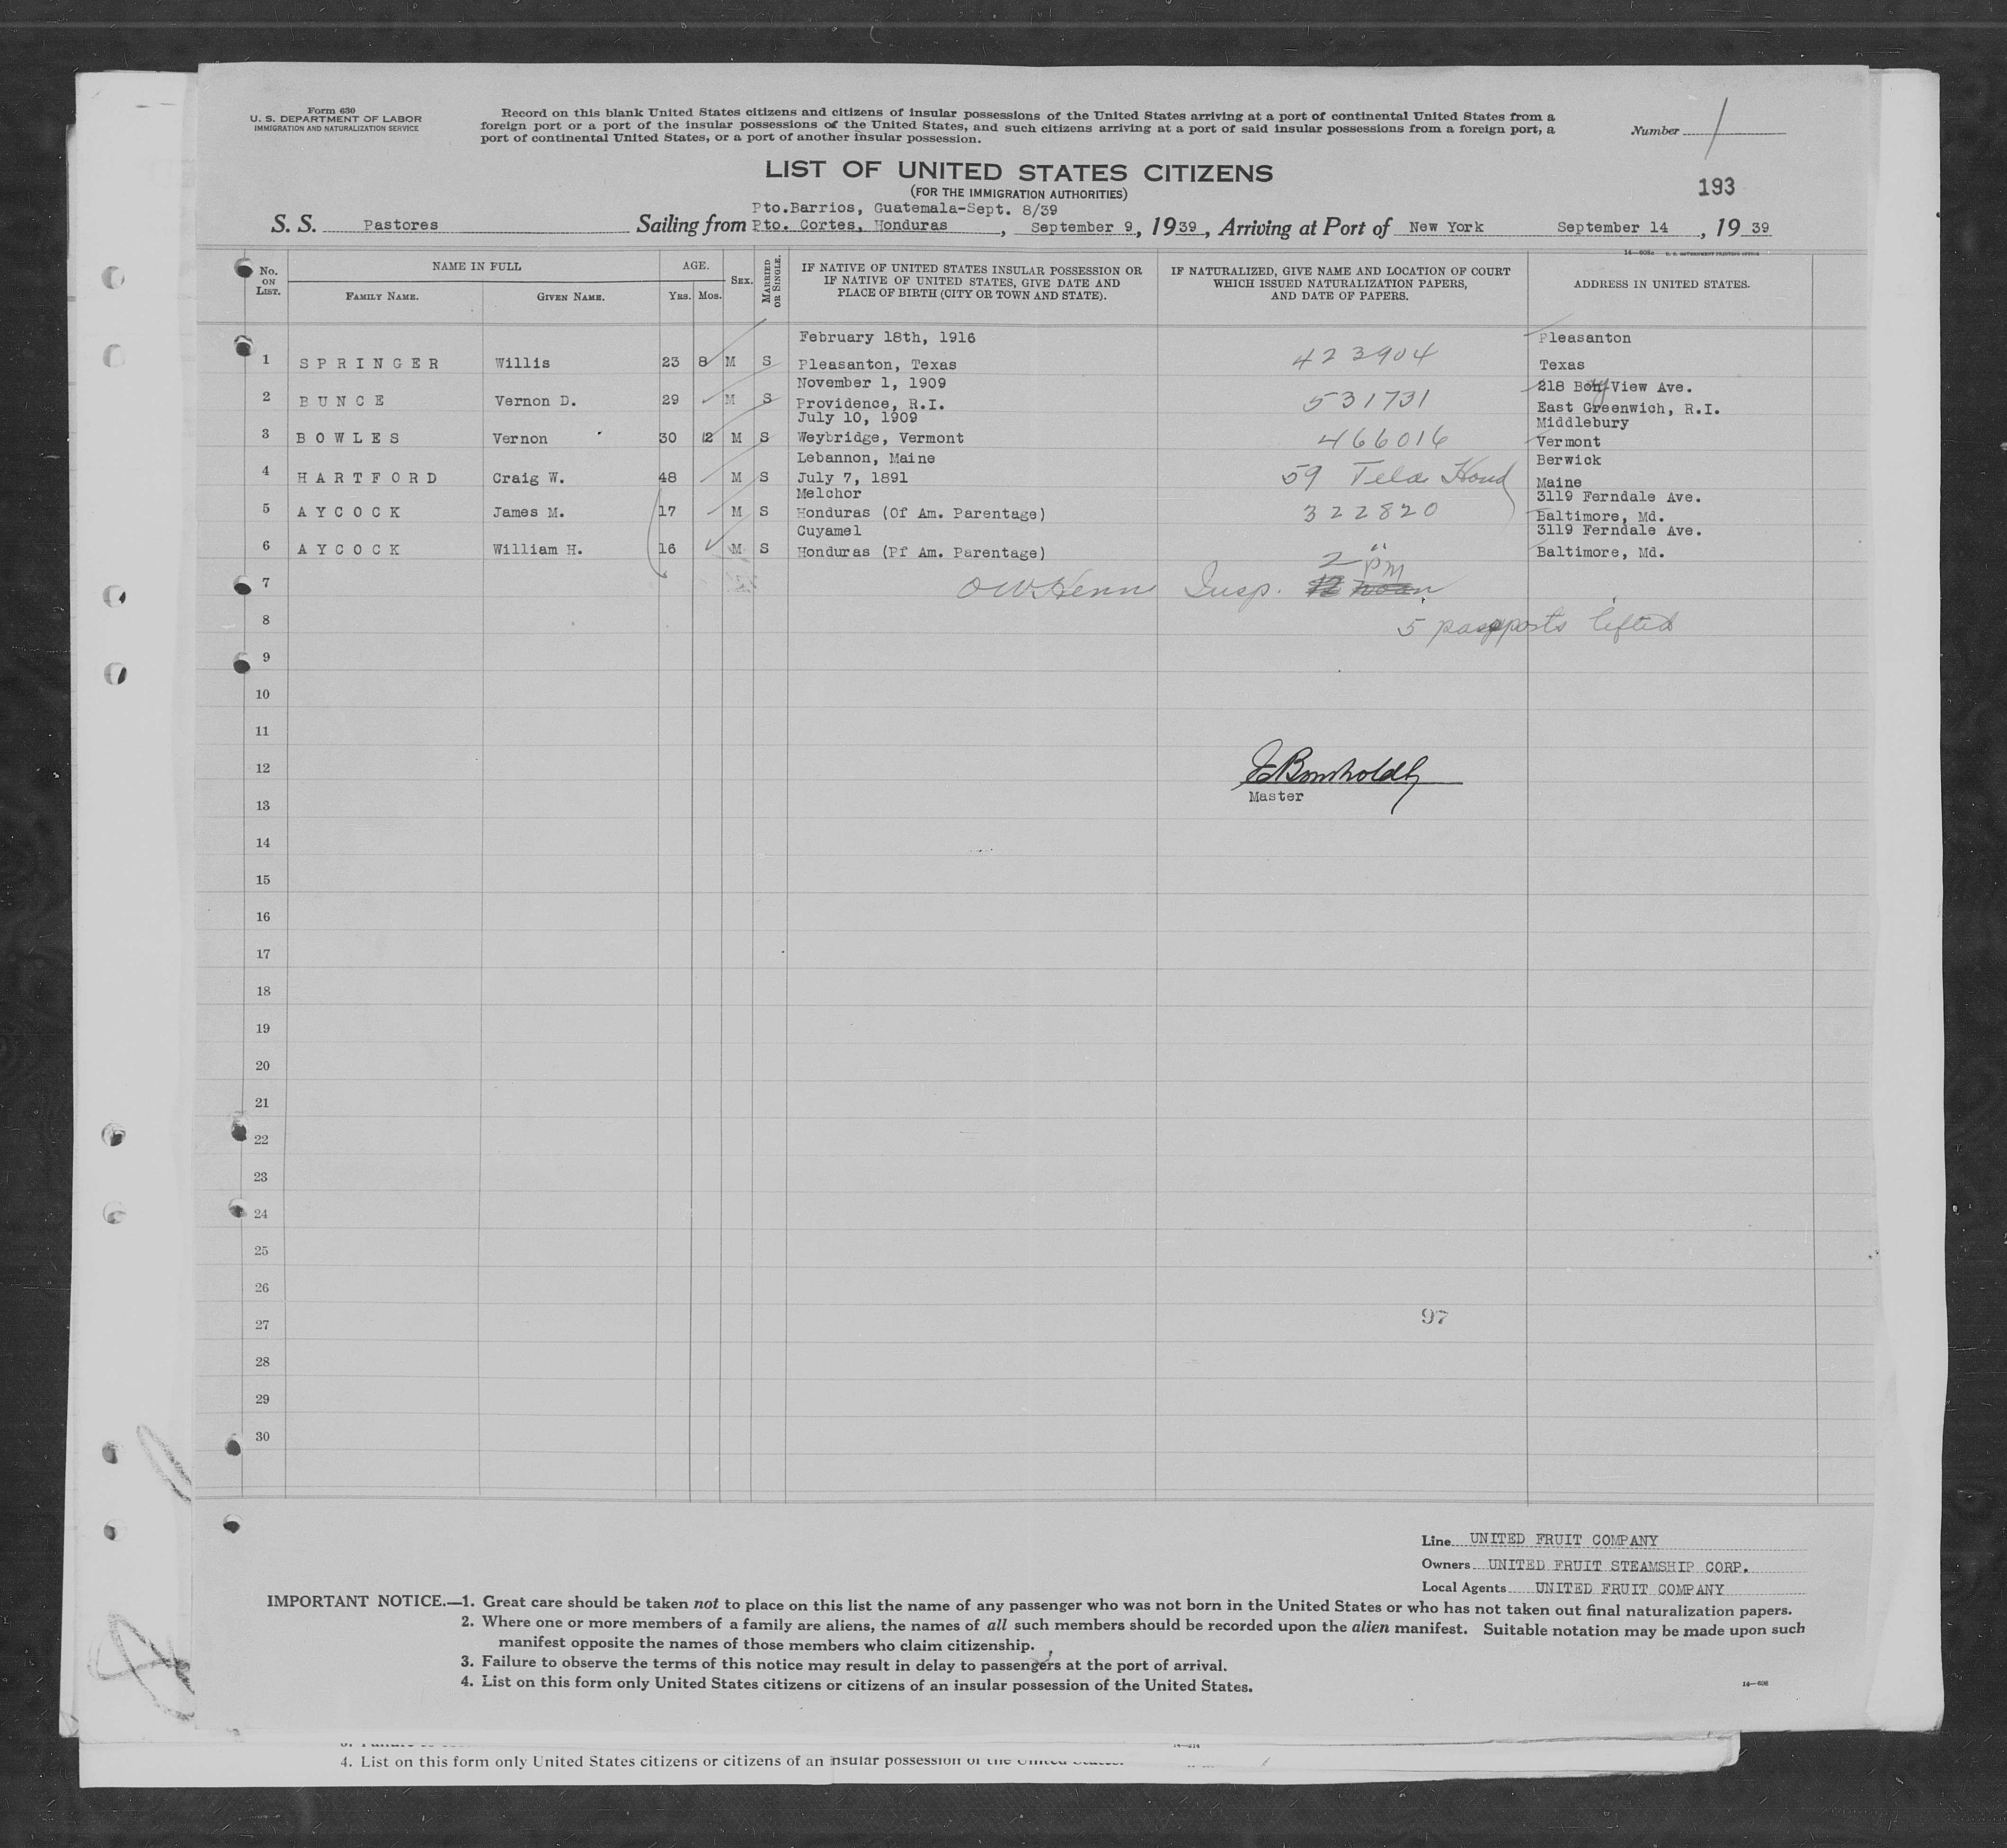 Form 630
U. S. DEPARTMENT OF LABOR
IMMIGRATION AND NATURALIZATION SERVICE
Record on this blank United States citizens and citizens of insular possessions of the United States arriving at a port of continental United States from a
foreign port or a port of the insular possessions of the United States, and such citizens arriving at a port of said insular possessions from a foreign port, a
port of continental United States, or a port of another insular possession.
Number 1
LIST OF UNITED STATES CITIZENS
(FOR THE IMMIGRATION AUTHORITIES)
193
Pto.Barrios, Guatemala-Sept. 8/39
S. S. Pastores Sailing from Pto. Cortes, Honduras, September 9, 1939, Arriving at Port of New York September 14, 1939
No. ON LIST. NAME IN FULL AGE. SEX. MARRIED OR SINGLE. IF NATIVE OF UNITED STATES INSULAR POSSESSION OR IF NATIVE OF UNITED STATES, GIVE DATE AND PLACE OF BIRTH (CITY OR TOWN AND STATE). IF NATURALIZED, GIVE NAME AND LOCATION OF COURT WHICH ISSUED NATURALIZATION PAPERS, AND DATE OF PAPERS. ADDRESS IN UNITED STATES.
FAMILY NAME. GIVEN NAME. YRS. MOS.
February 18th, 1916 Pleasanton
1 SPRINGER Willis 23 8 M S Pleasanton, Texas 423904 Texas
November 1, 1909 218 Bon View Ave.
2 BUNCE Vernon D. 29 M S Providence, R.I. 531731 East Greenwich, R.I.
July 10, 1909 Middlebury
3 BOWLES Vernon 30 2 M S Weybridge, Vermont 466016 Vermont
Lebannon, Maine Berwick
4 HARTFORD Craig W. 48 M S July 7, 1891 59 Tela Hond Maine
Melchor 3119 Ferndale Ave.
5 AYCOCK James M. 17 M S Honduras (Of Am. Parentage) 322820 Baltimore, Md.
Cuyamel 3119 Ferndale Ave.
6 AYCOCK William H. 16 M S Honduras (Pf Am. Parentage) " Baltimore, Md.
2 pm
7 Insp. 12 noon
8 5 passports lifted
9
10
11
12
Master
13
14
15
16
17
18
19
20
21
22
23
24
25
26
27 97
28
29
30
Line UNITED FRUIT COMPANY
Owners UNITED FRUIT STEAMSHIP CORP.
Local Agents UNITED FRUIT COMPANY
IMPORTANT NOTICE.—1. Great care should be taken not to place on this list the name of any passenger who was not born in the United States or who has not taken out final naturalization papers.
2. Where one or more members of a family are aliens, the names of all such members should be recorded upon the alien manifest. Suitable notation may be made upon such
manifest opposite the names of those members who claim citizenship.
3. Failure to observe the terms of this notice may result in delay to passengers at the port of arrival.
4. List on this form only United States citizens or citizens of an insular possession of the United States.
14—608
4. List on this form only United States citizens or citizens of an insular possession of the United States.